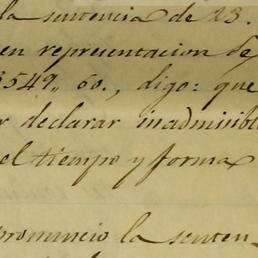 la sentencia de 23.
en representacion de
3549,, 60., digo: que
declarar inadmisibl
el tiempo y forma
pronuncio la senten-